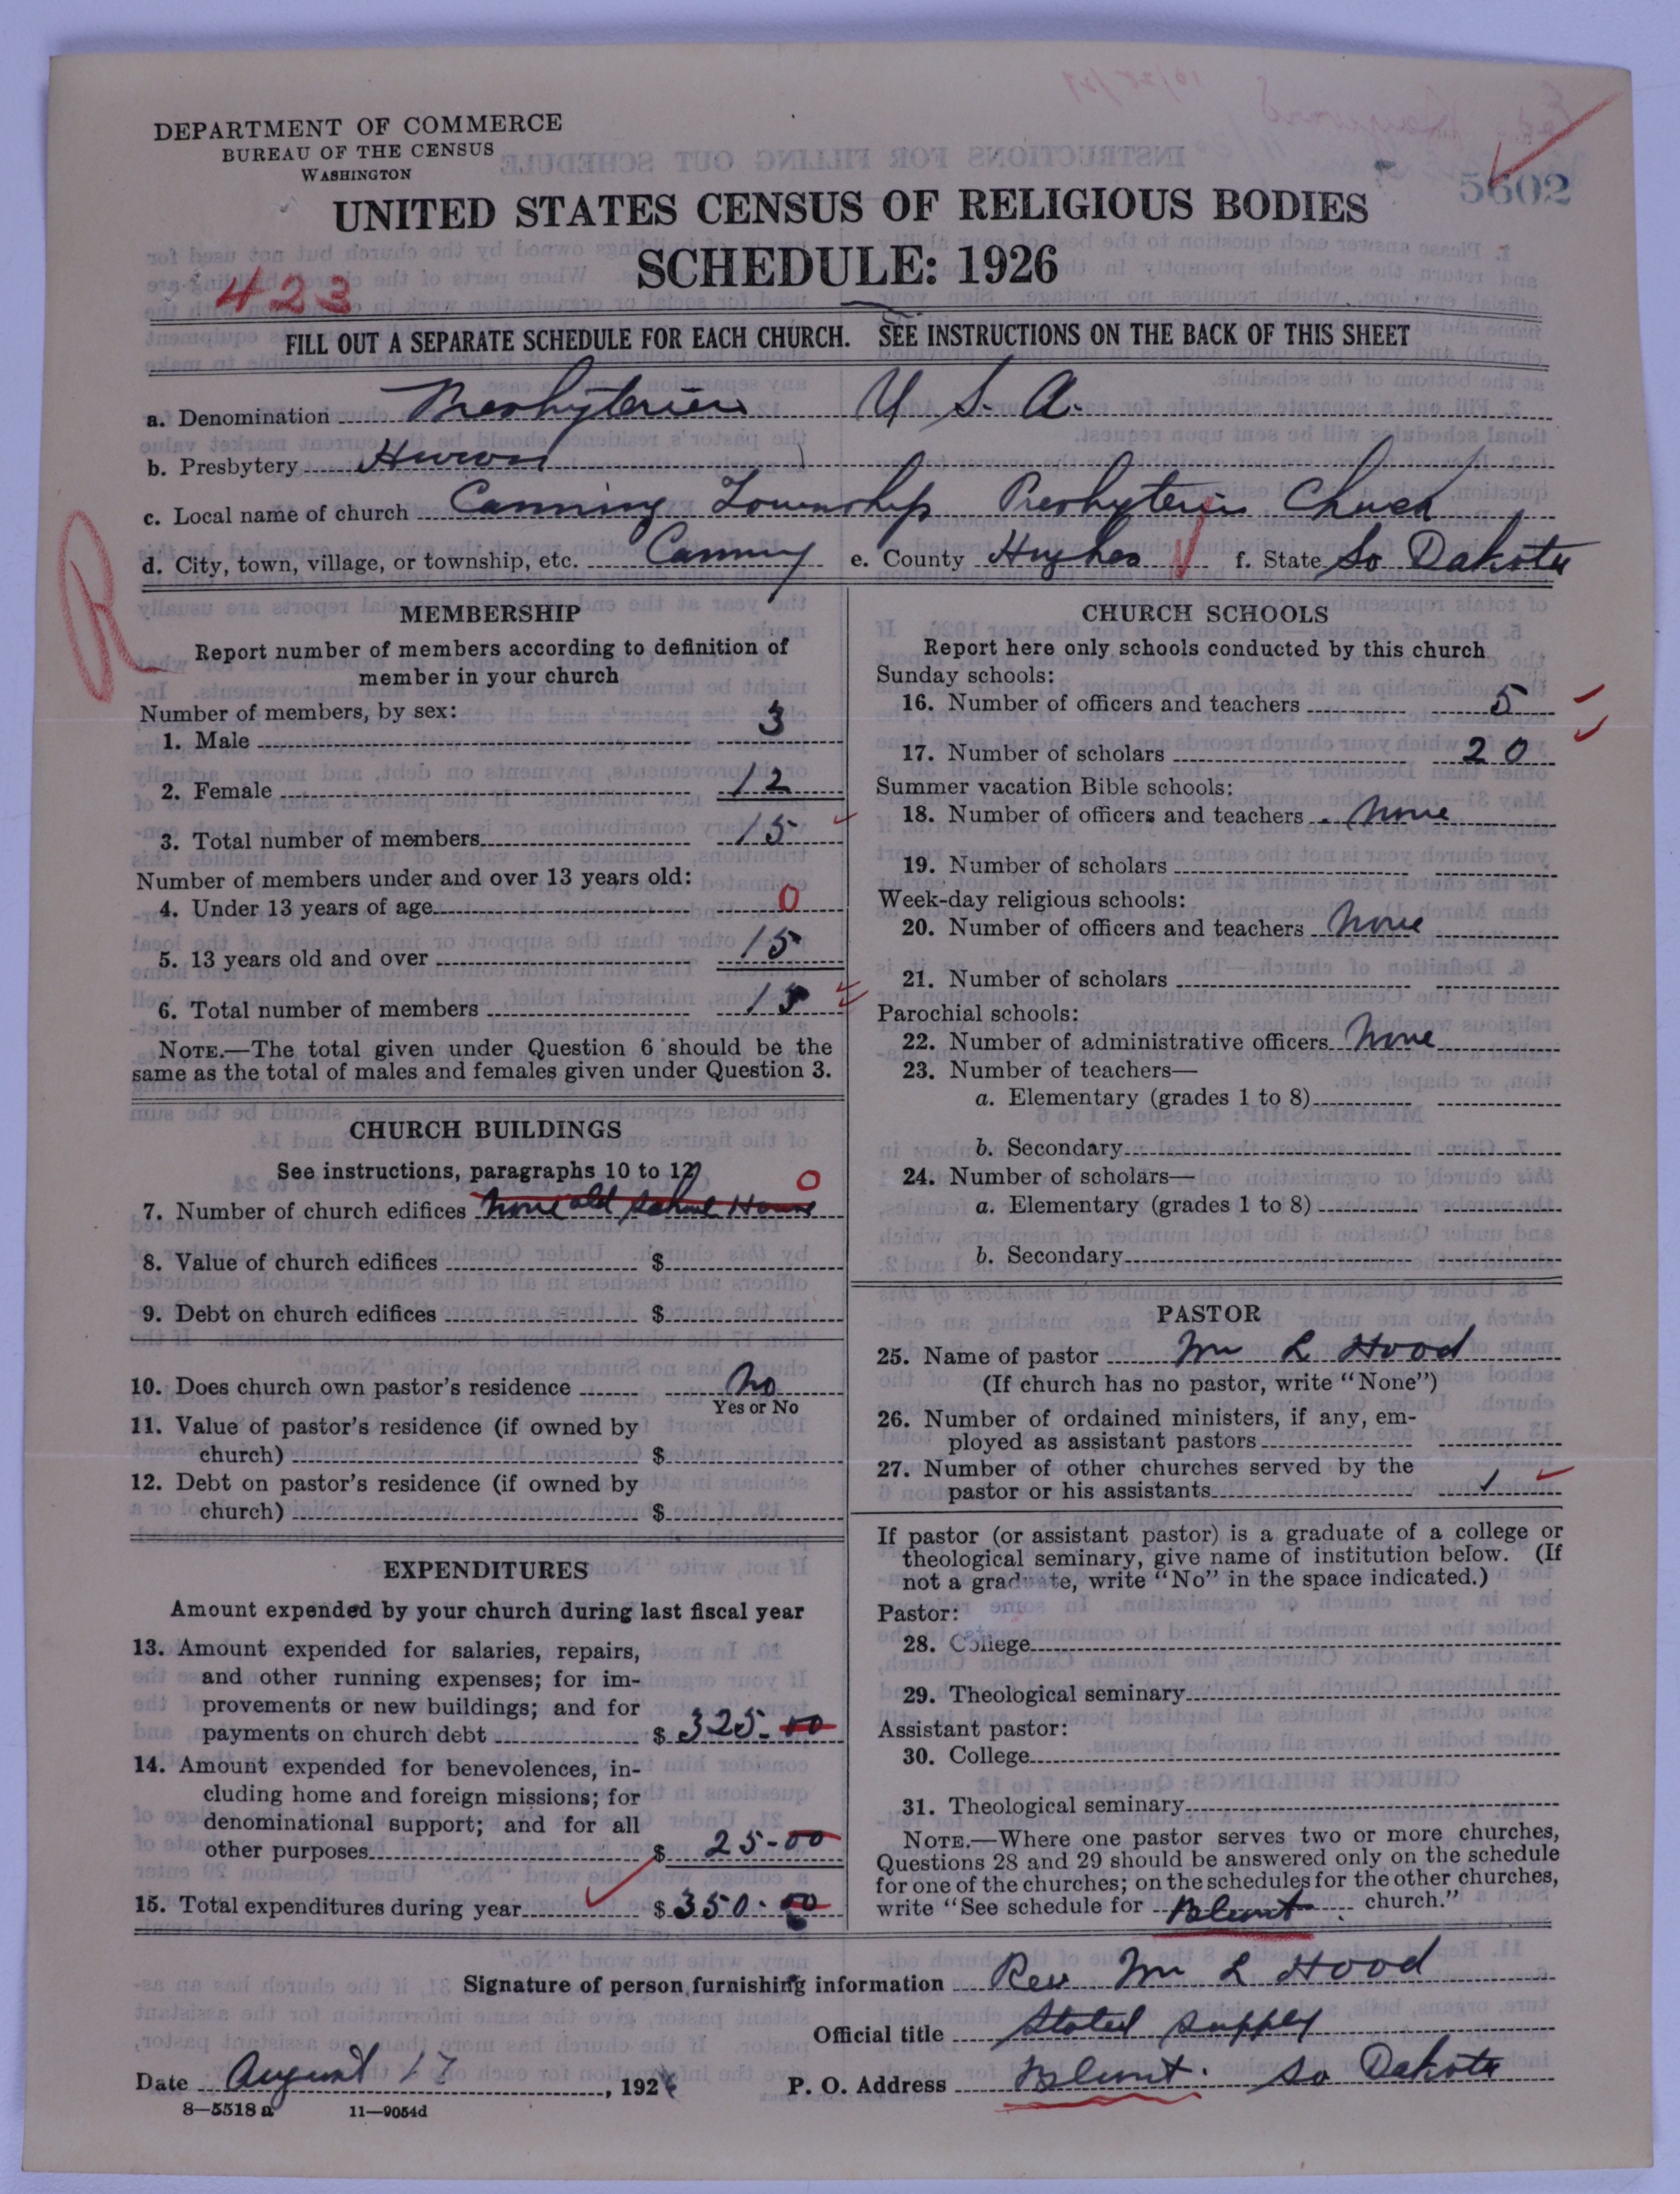 DEPARTMENT OF COMMERCE
BUREAU OF THE CENSUS
WASHINGTON
5602
UNITED STATES CENSUS OF RELIGIOUS BODIES
SCHEDULE: 1926
423
FILL OUT A SEPARATE SCHEDULE FOR EACH CHURCH. SEE INSTRUCTIONS ON THE BACK OF THIS SHEET
a. Denomination Presbyterian U. S. A.
b. Presbytery Huron
c. Local name of church Canning Township Presbyterian Church
d. City, town, village, or township, etc. Canning e. County Hughes f. State So Dakota
R
MEMBERSHIP
Report number of members according to definition of
member in your church
Number of members, by sex:
1. Male 3
2. Female 12
3. Total number of members 15
Number of members under and over 13 years old:
4. Under 13 years of age 0
5. 13 years old and over 15
6. Total number of members 15
NOTE.—The total given under Question 6 should be the
same as the total of males and females given under Question 3.
CHURCH BUILDINGS
See instructions, paragraphs 10 to 12
7. Number of church edifices None old School House 0
8. Value of church edifices $
9. Debt on church edifices $
10. Does church own pastor's residence No
Yes or No
11. Value of pastor's residence (if owned by
church) $
12. Debt on pastor's residence (if owned by
church) $
EXPENDITURES
Amount expended by your church during last fiscal year
13. Amount expended for salaries, repairs,
and other running expenses; for im-
provements or new buildings; and for
payments on church debt $ 325-00
14. Amount expended for benevolences, in-
cluding home and foreign missions; for
denominational support; and for all
other purposes $ 25-00
15. Total expenditures during year $ 350-00
CHURCH SCHOOLS
Report here only schools conducted by this church
Sunday schools:
16. Number of officers and teachers 5
17. Number of scholars 20
Summer vacation Bible schools:
18. Number of officers and teachers None
19. Number of scholars
Week-day religious schools:
20. Number of officers and teachers None
21. Number of scholars
Parochial schools:
22. Number of administrative officers None
23. Number of teachers—
a. Elementary (grades 1 to 8)
b. Secondary
24. Number of scholars—
a. Elementary (grades 1 to 8)
b. Secondary
PASTOR
25. Name of pastor Wm L Hood
(If church has no pastor, write "None")
26. Number of ordained ministers, if any, em-
ployed as assistant pastors
27. Number of other churches served by the
pastor or his assistants 1
If pastor (or assistant pastor) is a graduate of a college or
theological seminary, give name of institution below. (If
not a graduate, write "No" in the space indicated.)
Pastor:
28. College
29. Theological seminary
Assistant pastor:
30. College
31. Theological seminary
NOTE.—Where one pastor serves two or more churches,
Questions 28 and 29 should be answered only on the schedule
for one of the churches; on the schedules for the other churches,
write "See schedule for Blunt church."
Signature of person furnishing information Rev Wm L Hood
Official title Stated supply
Date August 17, 1926 P. O. Address Blunt. So Dakota
8—5518 a 11—9054d